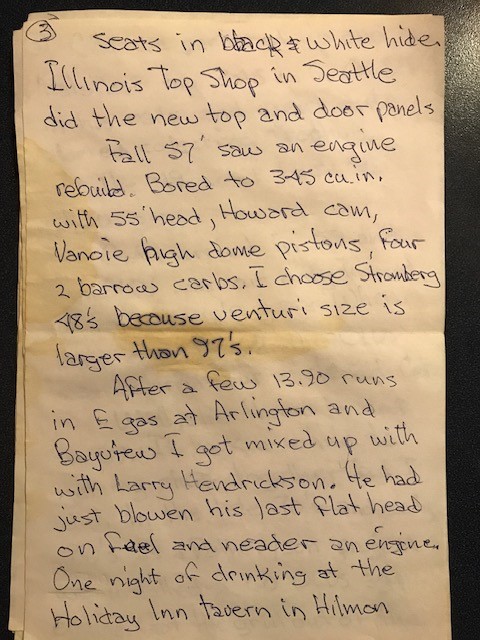 3
seats in black & white hide.
Illinois Top Shop in Seattle
did the new top and door panels
Fall 57' saw an engine
rebuild. Bored to 345 cu.in.
with 55' head, Howard cam,
Vanoie high dome pistons, four
2 barrow carbs. I choose Stromberg
48's because venturi size is
larger than 97's.
After a few 13.90 runs
in E gas at Arlington and
Bayview I got mixed up with
with Larry Hendrickson. He had
just blowen his last flat head
on fuel and neader an engine.
One night of drinking at the
Holiday Inn tavern in Hilman